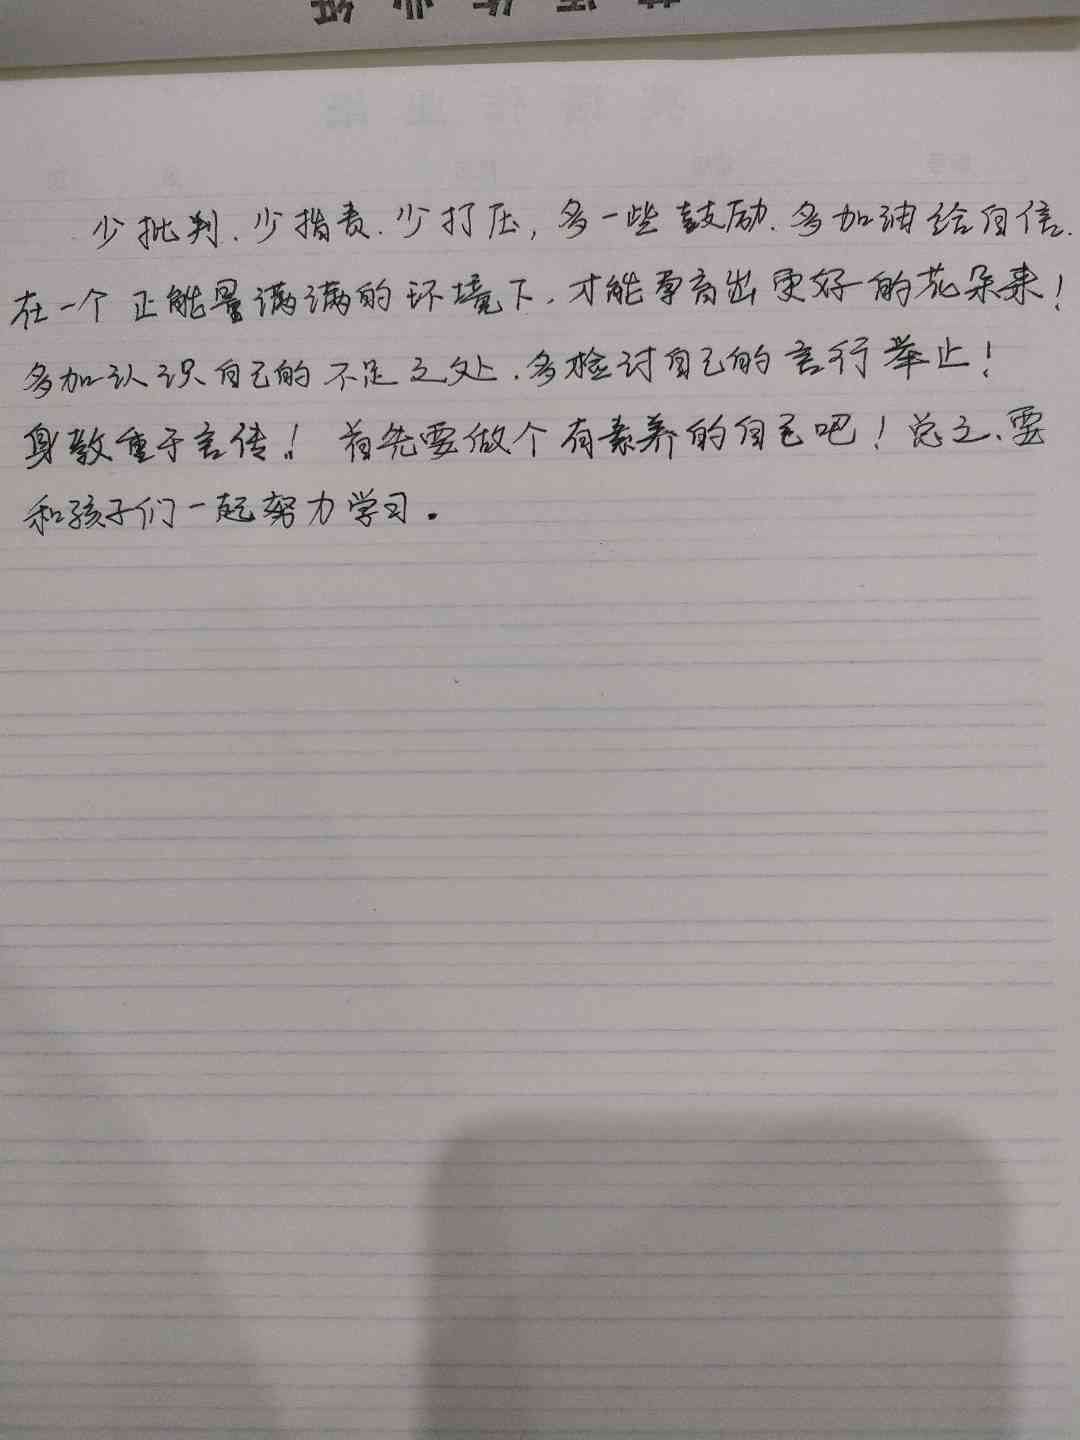 英语作业纸
少批判、少指责、少打压，多一些鼓励、多加油给自信、
在一个正能量满满的环境下，才能孕育出更好的花朵来！
多加认识自己的不足之处，多检讨自己的言行举止！
身教重于言传！首先要做个有素养的自己吧！总之、要
和孩子们一起努力学习。